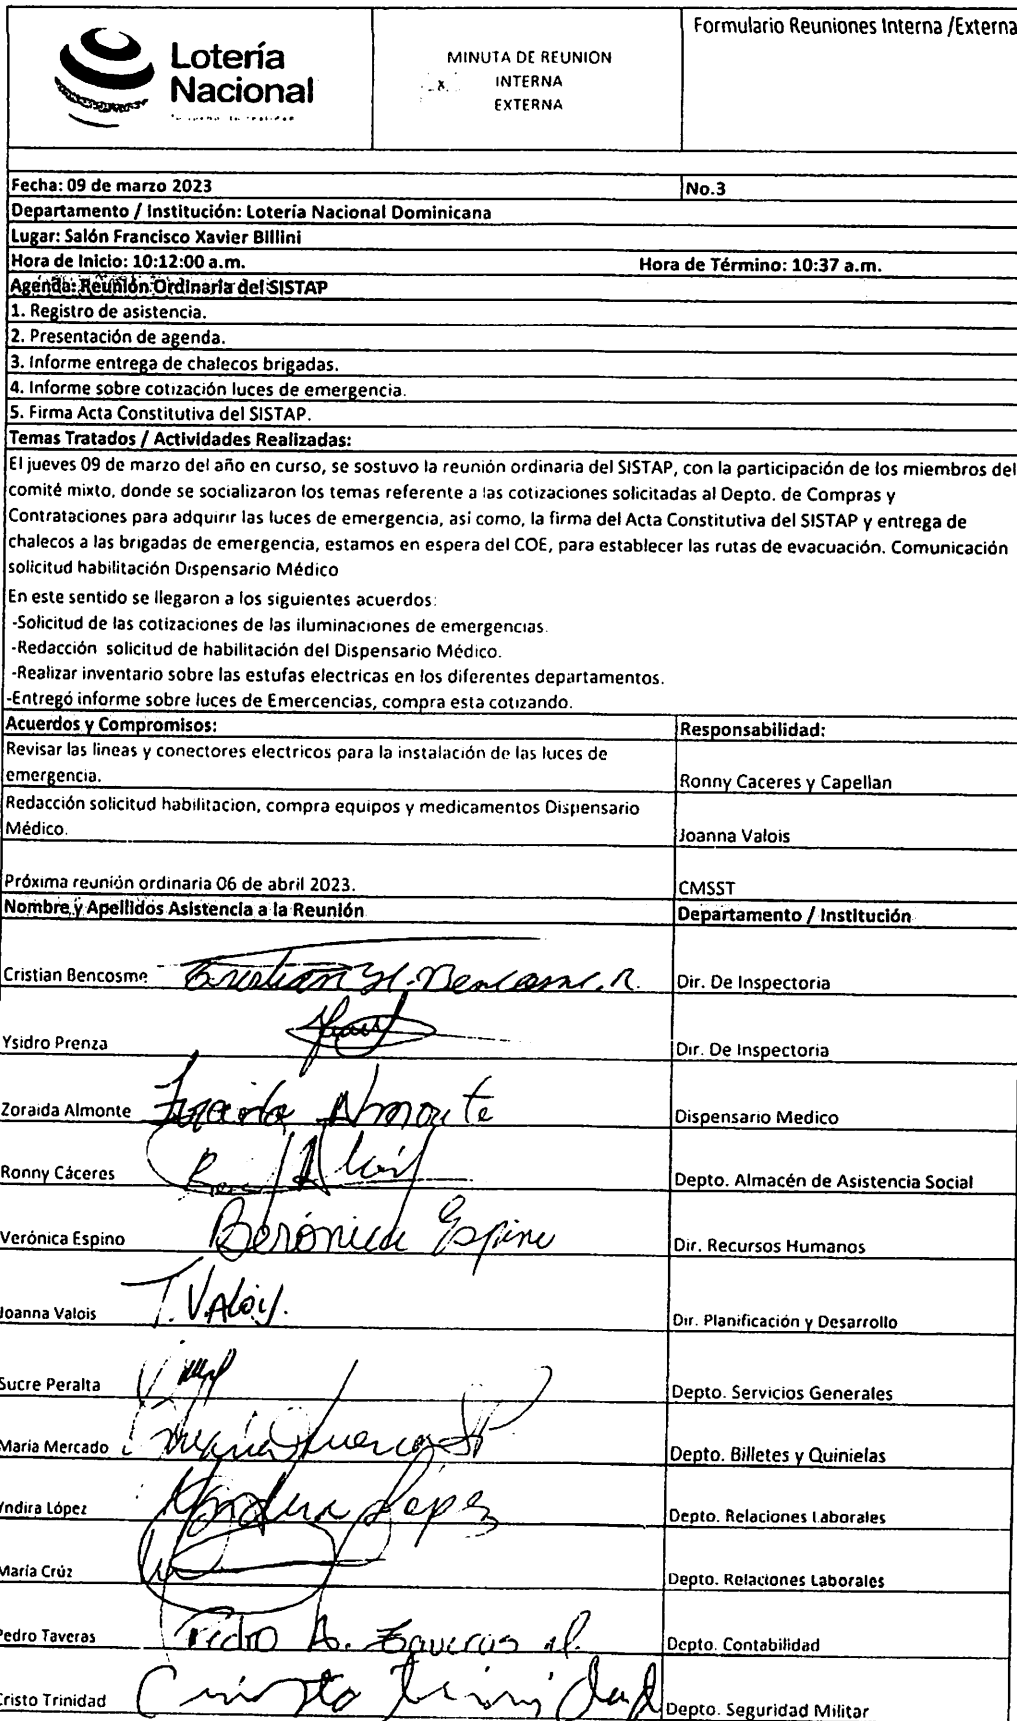 Lotería
Nacional
MINUTA DE REUNION
x INTERNA
EXTERNA
Formulario Reuniones Interna /Externa
Fecha: 09 de marzo 2023
No.3
Departamento / Institución: Lotería Nacional Dominicana
Lugar: Salón Francisco Xavier Billini
Hora de Inicio: 10:12:00 a.m.
Hora de Término: 10:37 a.m.
Agenda: Reunión Ordinaria del SISTAP
1. Registro de asistencia.
2. Presentación de agenda.
3. Informe entrega de chalecos brigadas.
4. Informe sobre cotización luces de emergencia.
5. Firma Acta Constitutiva del SISTAP.
Temas Tratados / Actividades Realizadas:
El jueves 09 de marzo del año en curso, se sostuvo la reunión ordinaria del SISTAP, con la participación de los miembros del
comité mixto, donde se socializaron los temas referente a las cotizaciones solicitadas al Depto. de Compras y
Contrataciones para adquirir las luces de emergencia, así como, la firma del Acta Constitutiva del SISTAP y entrega de
chalecos a las brigadas de emergencia, estamos en espera del COE, para establecer las rutas de evacuación. Comunicación
solicitud habilitación Dispensario Médico
En este sentido se llegaron a los siguientes acuerdos:
-Solicitud de las cotizaciones de las iluminaciones de emergencias.
-Redacción solicitud de habilitación del Dispensario Médico.
-Realizar inventario sobre las estufas electricas en los diferentes departamentos.
-Entregó informe sobre luces de Emercencias, compra esta cotizando.
Acuerdos y Compromisos:
Responsabilidad:
Revisar las lineas y conectores electricos para la instalación de las luces de
emergencia.
Ronny Caceres y Capellan
Redacción solicitud habilitacion, compra equipos y medicamentos Dispensario
Médico.
Joanna Valois
Próxima reunión ordinaria 06 de abril 2023.
CMSST
Nombre y Apellidos Asistencia a la Reunión
Departamento / Institución
Cristian Bencosme Cristian H. Bencosme. R.
Dir. De Inspectoria
Ysidro Prenza
Dir. De Inspectoria
Zoraida Almonte Zoraida Almonte
Dispensario Medico
Ronny Cáceres
Depto. Almacén de Asistencia Social
Verónica Espino Berónica Espino
Dir. Recursos Humanos
Joanna Valois J. Valois.
Dir. Planificación y Desarrollo
Sucre Peralta
Depto. Servicios Generales
Maria Mercado
Depto. Billetes y Quinielas
Yndira López Yndira López
Depto. Relaciones Laborales
María Crúz
Depto. Relaciones Laborales
Pedro Taveras Pedro A. Taveras
Depto. Contabilidad
Cristo Trinidad Cristo Trinidad
Depto. Seguridad Militar